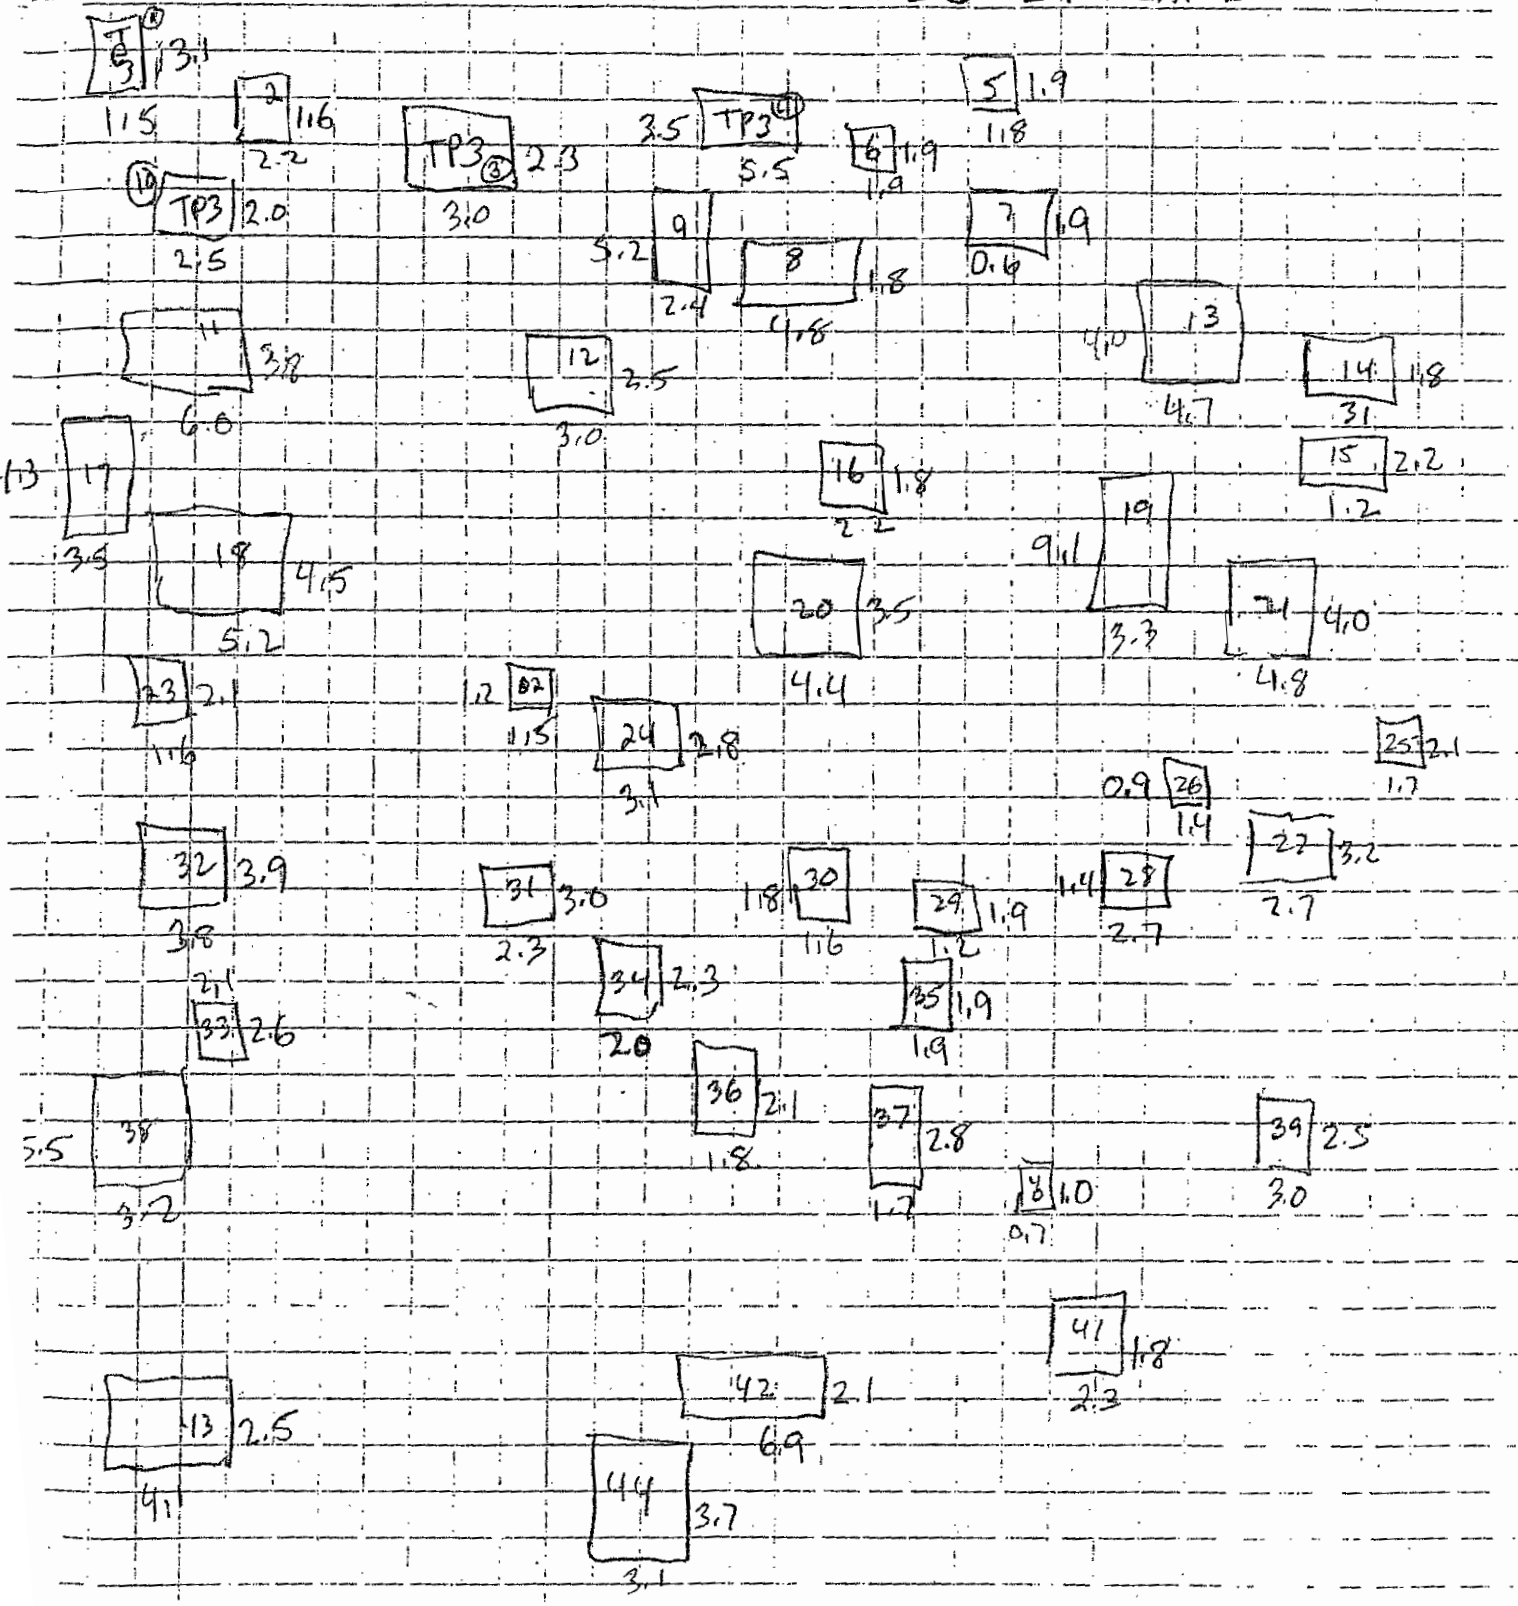 TP3 ① 3.1
1.5
2 1.6
2.2
TP3 ③ 2.3
3.0
3.5 TP3 ④
5.5
5 1.9
1.8
6 1.9
1.9
⑩ TP3 2.0
2.5
5.2 9
2.4
8 1.8
4.8
7 1.9
0.6
11 3.8
6.0
12 2.5
3.0
4.0 13
4.7
14 1.8
31
15 2.2
1.2
17
3.5
18 4.5
5.2
16 1.8
2.2
20 3.5
4.4
9.1 19
3.3
21 4.0
4.8
23 2.1
1.6
.2 22
1.5
24 2.8
3.1
25 2.1
1.7
0.9 26
1.4
27 3.2
2.7
32 3.9
3.8
31 3.0
2.3
1.8 30
1.6
29 1.9
1.2
1.4 28
2.7
2.1
33 2.6
34 2.3
2.0
35 1.9
1.9
36 2.1
1.8
37 2.8
1.7
38
3.2
1.0
0.7
39 2.5
3.0
41 1.8
2.3
42 2.1
6.9
43 2.5
4.1
44 3.7
3.1